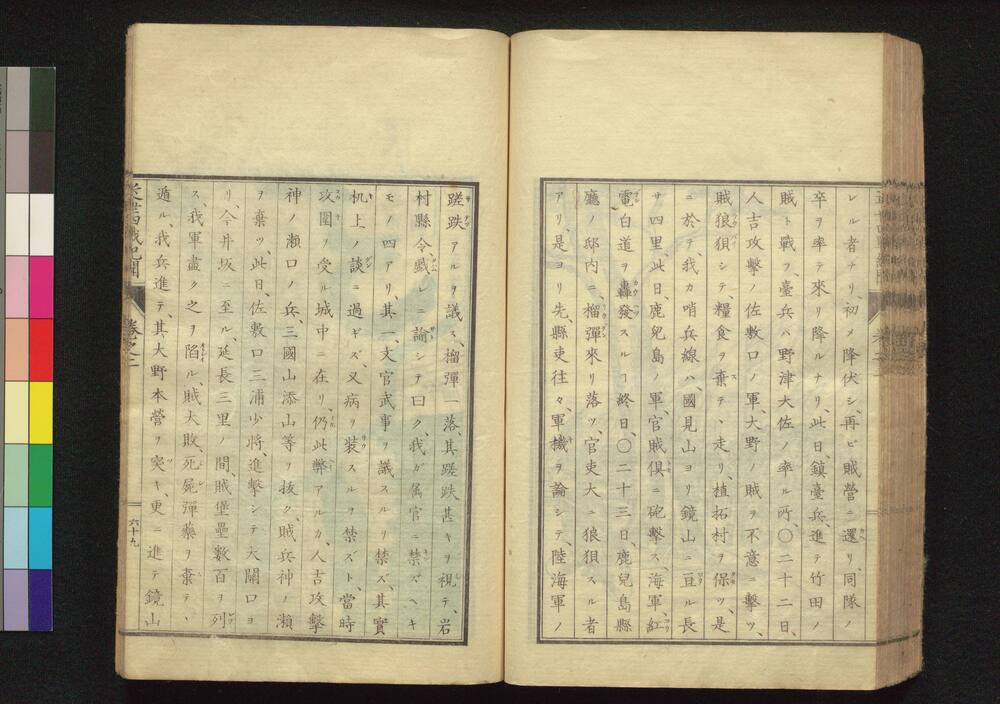 レル者ナリ、初メ降伏シ、再ビ賊營ニ還リ、同隊ノ
卒ヲ率テ來リ降ルナリ、此日、鎮臺兵、進テ竹田ノ
賊ト戰ヲ、臺兵ハ野津大佐ノ率ル所、〇二十二日、
人吉攻擊ノ佐敷口ノ軍、大野ノ賊ヲ不意ニ擊ツ、
賊狼狽シテ、糧食ヲ棄テ、走リ、植拓村ヲ保ツ、是
ニ於ヲ、我カ哨兵線ハ、國見山ヨリ鏡山ニ亘ル長
サ四里、此日鹿兒島ノ軍、官賊俱ニ砲擊ス、海軍、紅
電白道ヲ轟發スルヿ終日、〇二十三日、鹿兒島縣
廳ノ邸内ニ榴彈來リ落ツ、官吏大ニ狼狽スル者
アリ、是ヨリ先、縣吏往々、軍機ヲ論シテ、陸海軍ノ
蹉跌アルヲ議ス、榴彈一落、其蹉跌甚キヲ視テ、岩
村縣令、戲レニ諭シテ曰ク、我ガ属官ニ禁ズヘキ
モノ四アリ、其一、文官武事ヲ議スルヲ禁ズ、其實
机上ノ談ニ過ギズ、又病ヲ装スルヲ禁ズト、當時
攻圍ヲ受ル城中ニ在リ、仍此弊アルカ、人吉攻擊
神ノ瀬口ノ兵、三國山添山等ヲ抜ク、賊兵神ノ瀬
ヲ棄ツ、此日、佐敷口三浦少將、進擊シテ大關口ヨ
リ、今井坂ニ至ル、延長三里ノ間、賊堡壘數百ヲ列
ス、我軍盡ク之ヲ陷ル、賊大敗、死屍彈藥ヲ棄テ、
遁ル、我兵進テ、其大野本營ヲ突キ、更ニ進テ鏡山
卷之二
六十九